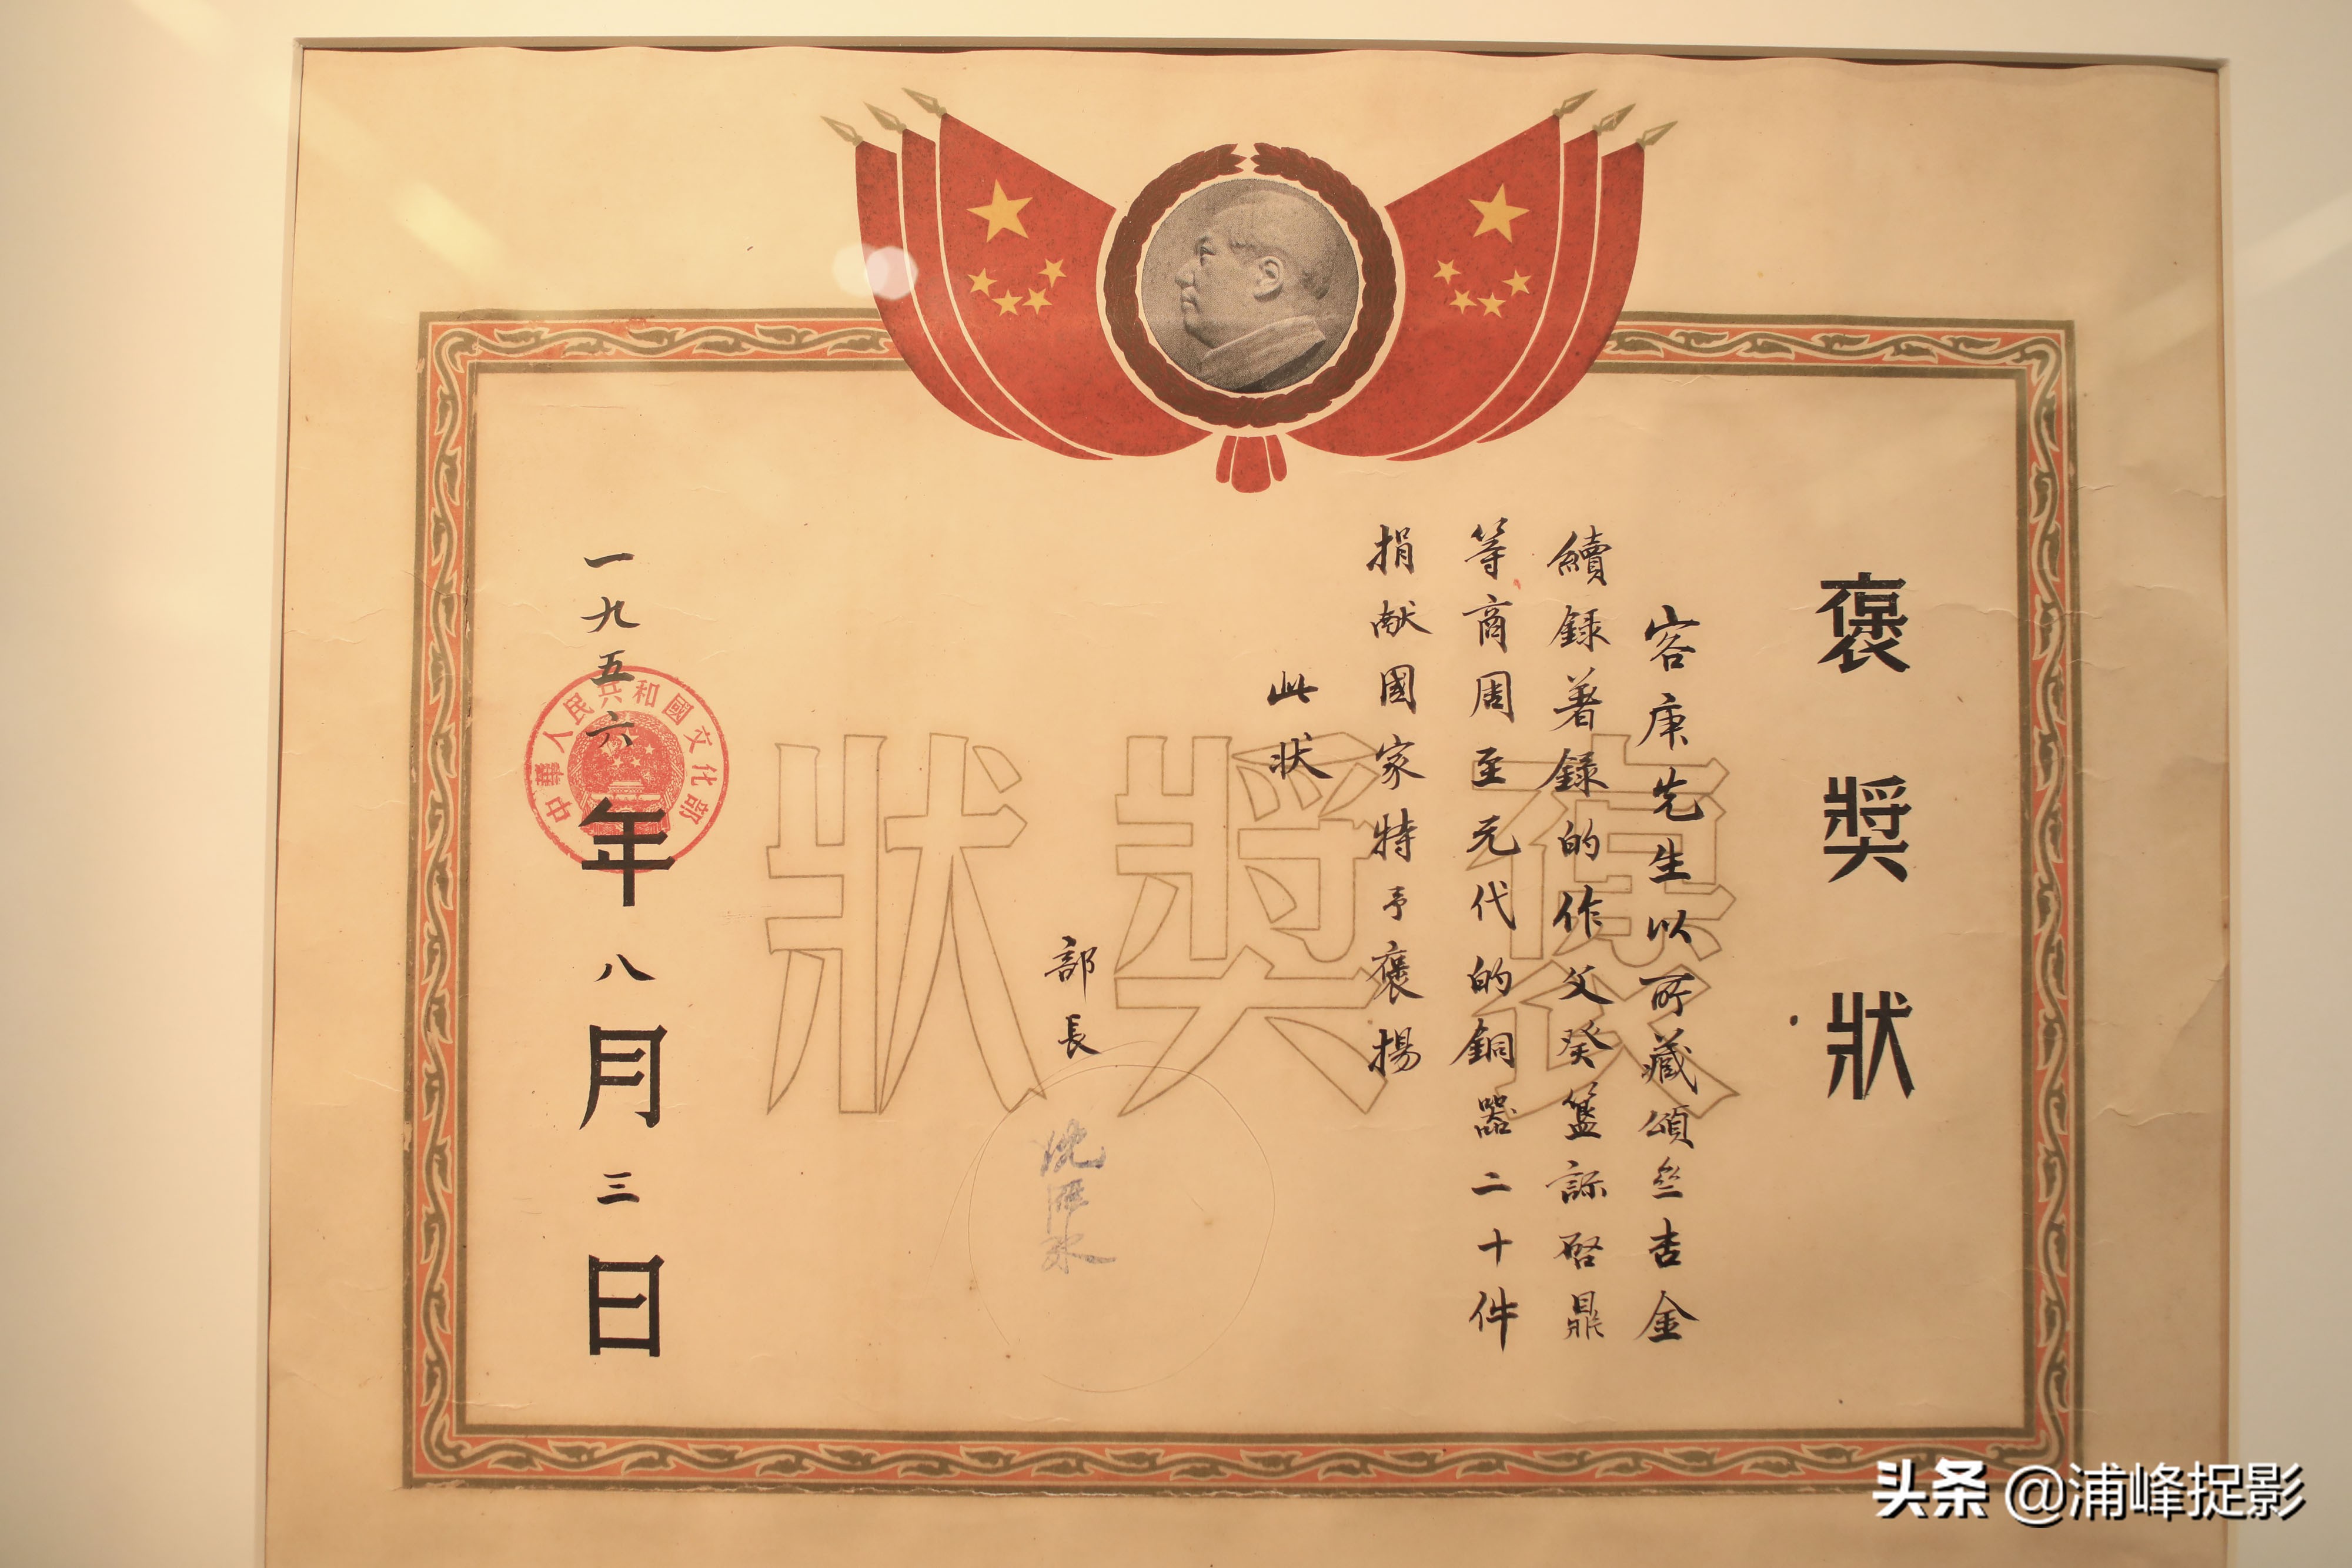 褒獎狀
容庚先生以所藏頌亝吉金
續録著録的作父癸簋啓鼎
等商周至元代的銅器二十件
捐献國家特予褒揚
此状
部長
沈雁冰
一九五六年八月三日
中華人民共和國文化部
褒獎狀
头条 @浦峰捉影